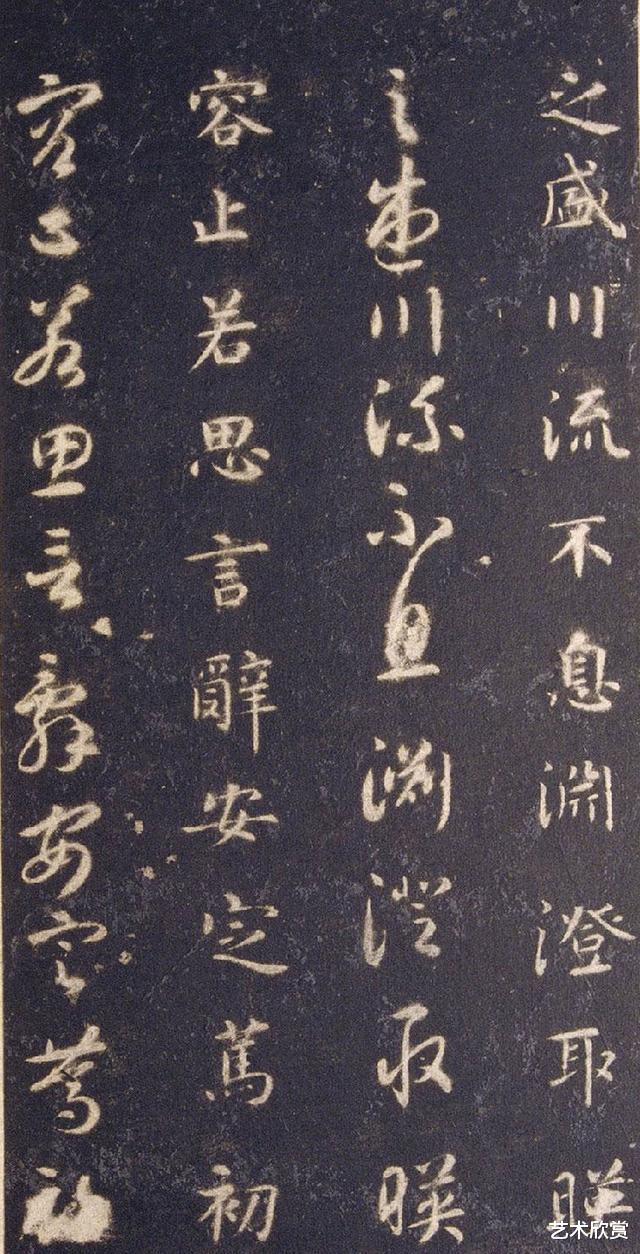 之盛川流不息淵澄取暎
之盛川流不息淵澄取暎
容止若思言辭安定篤初
容止若思言辭安定篤初
艺术欣赏